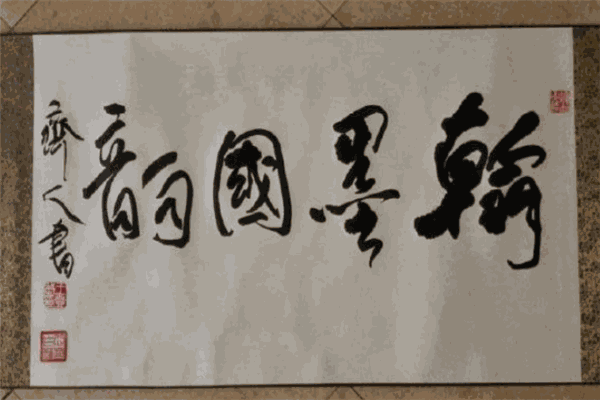 翰墨國韵
齊人書